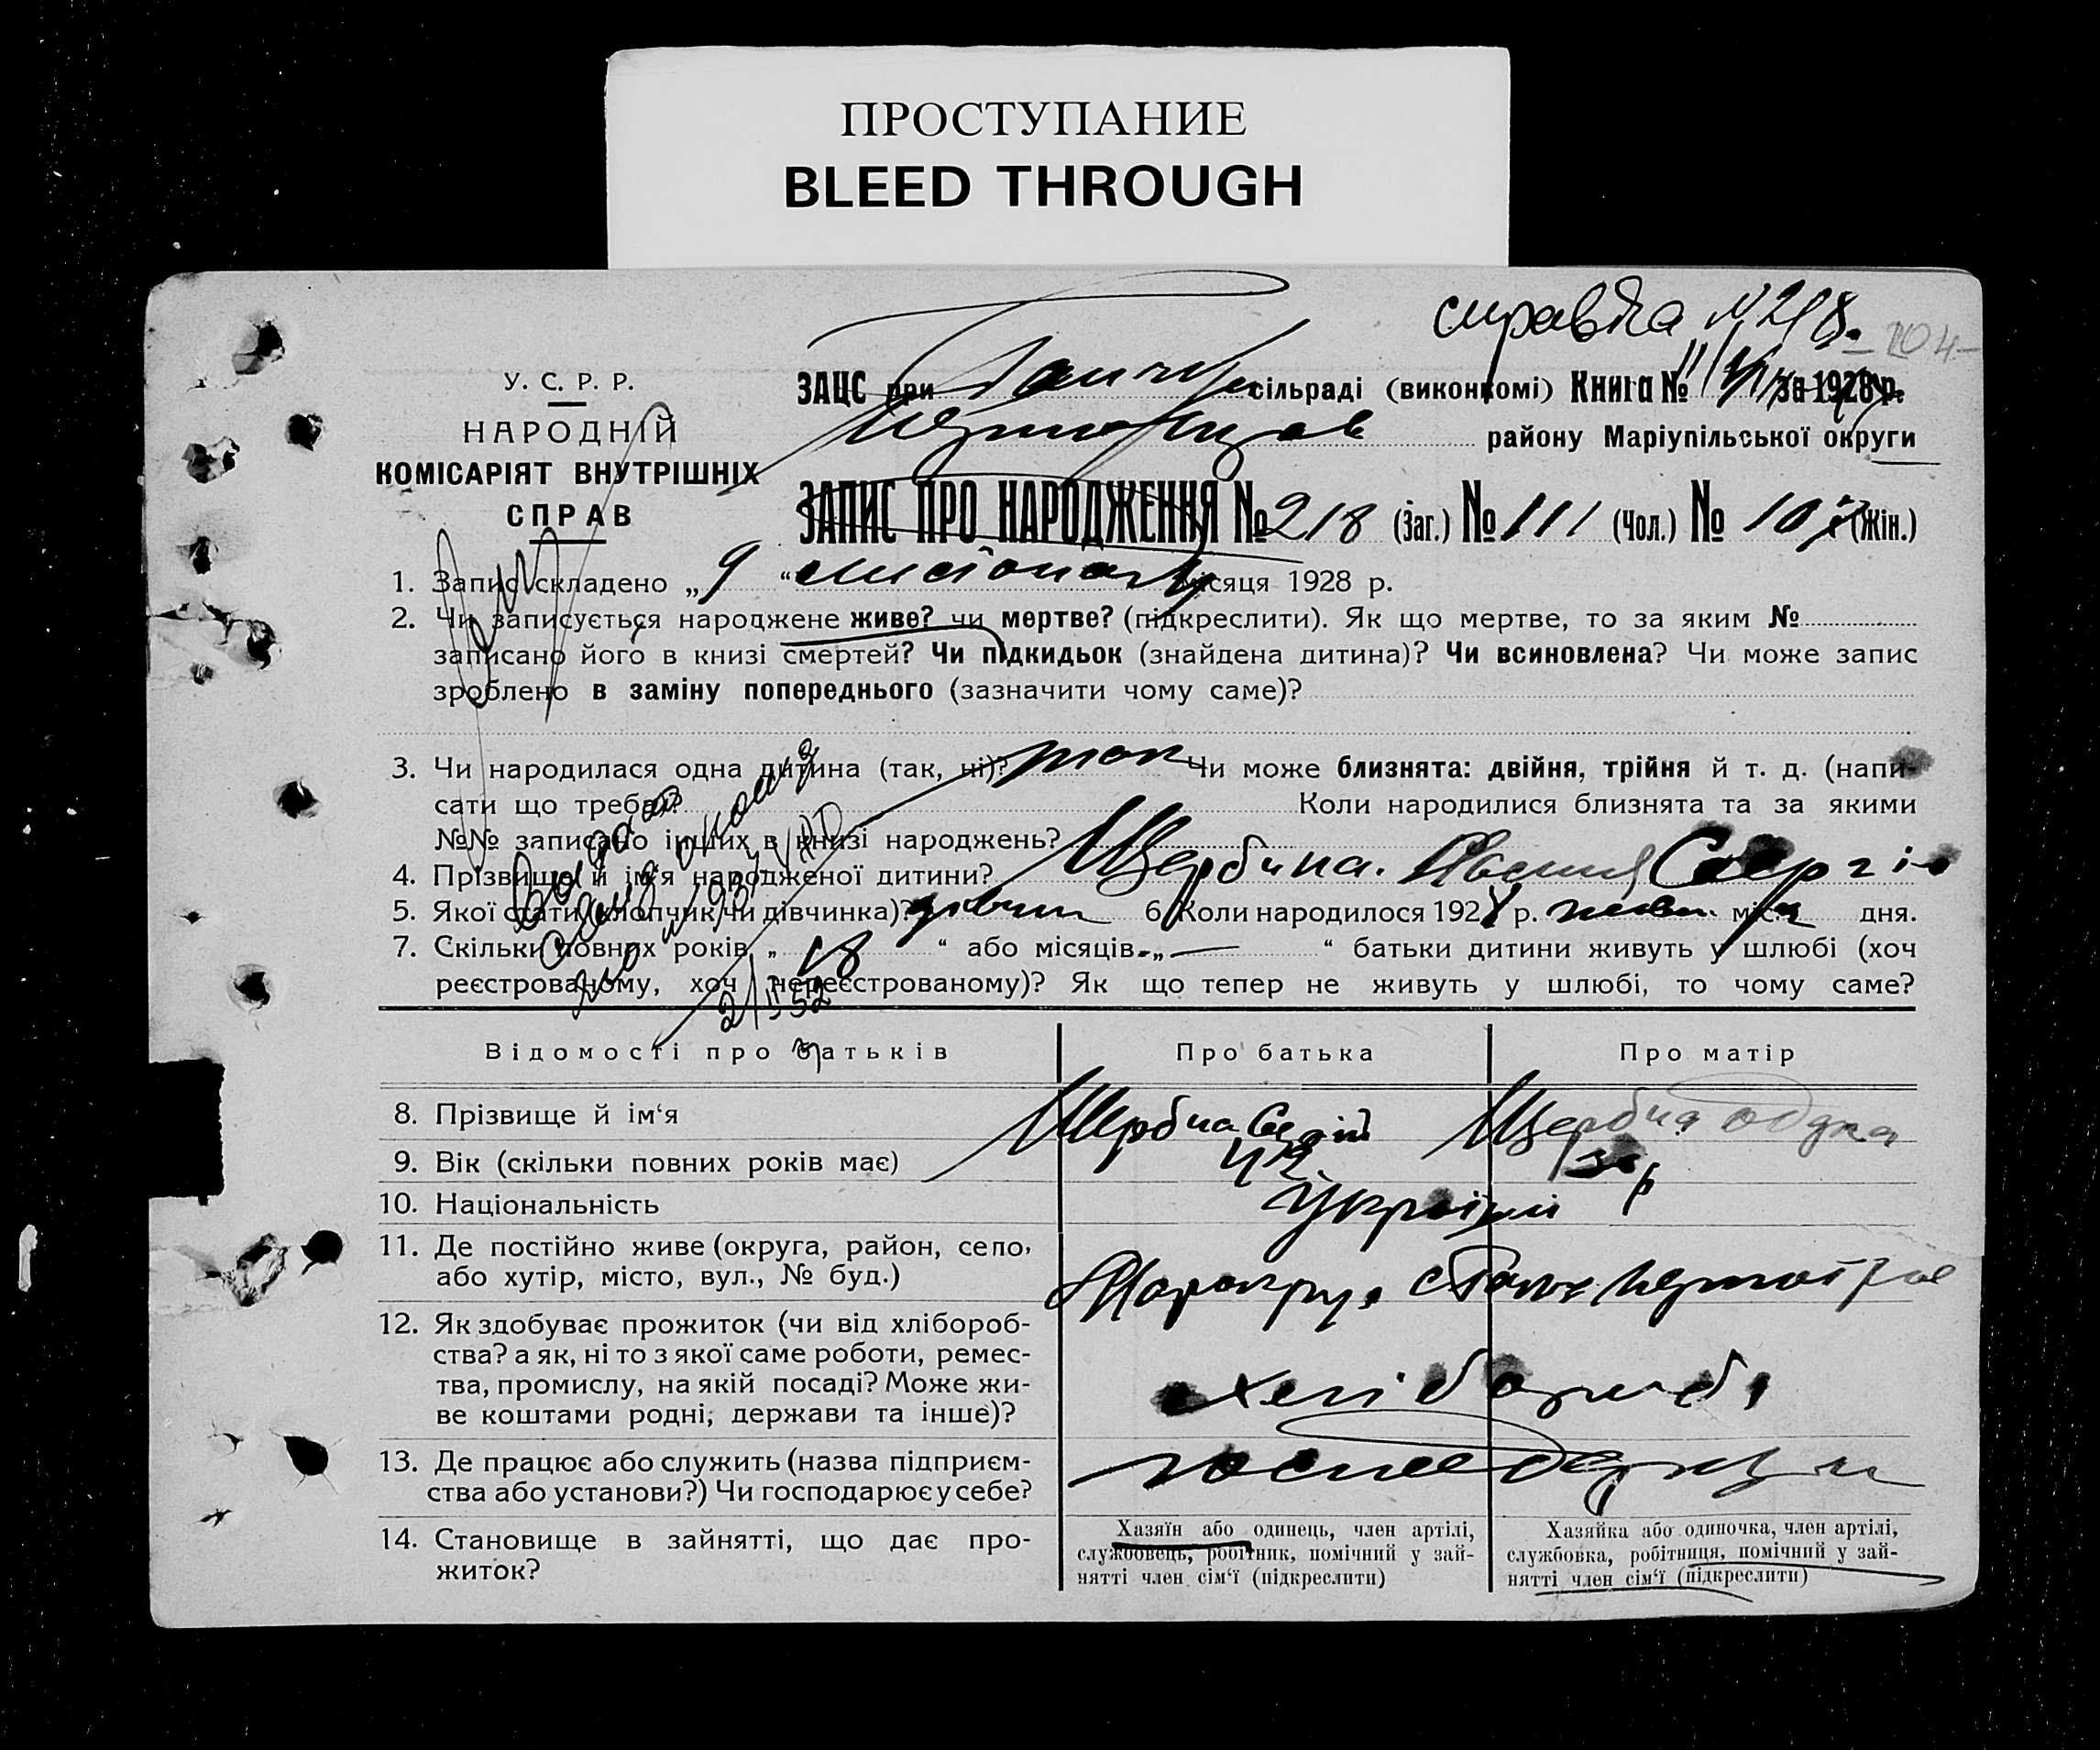 ПРОСТУПАНИЕ
BLEED THROUGH
справка №218.
104
У. С. Р. Р.
НАРОДНІЙ
КОМІСАРІЯТ ВНУТРІШНІХ
СПРАВ
ЗАЦС при сільраді (виконкомі) Книга № за 1928 р.
району Маріупільської округи
ЗАПИС ПРО НАРОДЖЕННЯ № 218 (Заг.) № 111 (Чол.) № 107 (Жін.)
1. Запис складено „ 9 “ листопаду місяця 1928 р.
2. Чи записується народжене живе? чи мертве? (підкреслити). Як що мертве, то за яким №
записано його в книзі смертей? Чи підкидьок (знайдена дитина)? Чи всиновлена? Чи може запис
зроблено в заміну попереднього (зазначити чому саме)?
3. Чи народилася одна дитина (так, ні)? так Чи може близнята: двійня, трійня й т. д. (напи-
сати що треба)? Коли народилися близнята та за якими
№№ записано інших в книзі народжень?
4. Прізвище й ім'я народженої дитини? Щербина.
5. Якої стати (хлопчик чи дівчинка)? дівчин 6. Коли народилося 1928 р. міся дня.
7. Скільки повних років „ 18 “ або місяців „ — “ батьки дитини живуть у шлюбі (хоч
реєстрованому, хоч нереєстрованому)? Як що тепер не живуть у шлюбі, то чому саме?
Відомості про батьків Про батька Про матір
8. Прізвище й ім‘я Щербина Сергій Щербина
9. Вік (скільки повних років має)
10. Національність Україн
11. Де постійно живе (округа, район, село,
або хутір, місто, вул., № буд.)
12. Як здобуває прожиток (чи від хлібороб-
ства? а як, ні то з якої саме роботи, ремес-
тва, промислу, на якій посаді? Може жи-
ве коштами родні, держави та інше)?
хліборобі
13. Де працює або служить (назва підприєм-
ства або установи?) Чи господарює у себе?
14. Становище в зайнятті, що дає про-
житок?
Хазяїн або одинець, член артілі,
службовець, робітник, помічний у зай-
нятті член сім‘ї (підкреслити)
Хазяйка або одиночка, член артілі,
службовка, робітниця, помічний у зай-
нятті член сім‘ї (підкреслити)